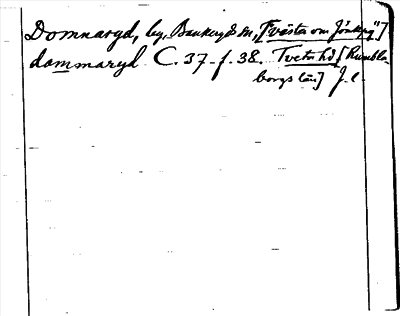 Domnaryd, by, Bankeryds sn, [väster om Jönköpg"]
dommaryd C. 37. f. 38. Tveta hd [Rumbla-
borgs län] J. l.